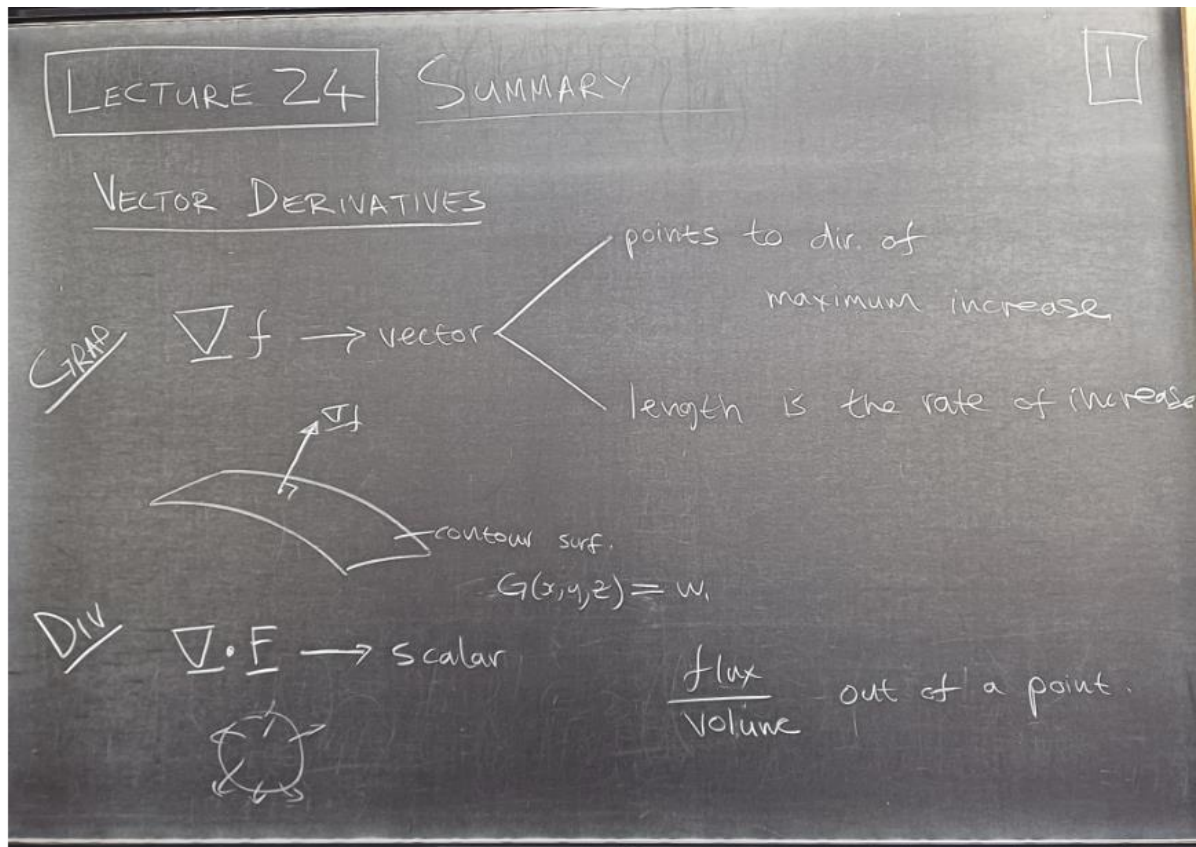 LECTURE 24 SUMMARY
1
VECTOR DERIVATIVES
GRAD
∇f → vector
points to dir. of
maximum increase
length is the rate of increase
∇f
contour surf.
G(x,y,z) = w₁
DIV
∇·F → scalar
flux
volume
out of a point.